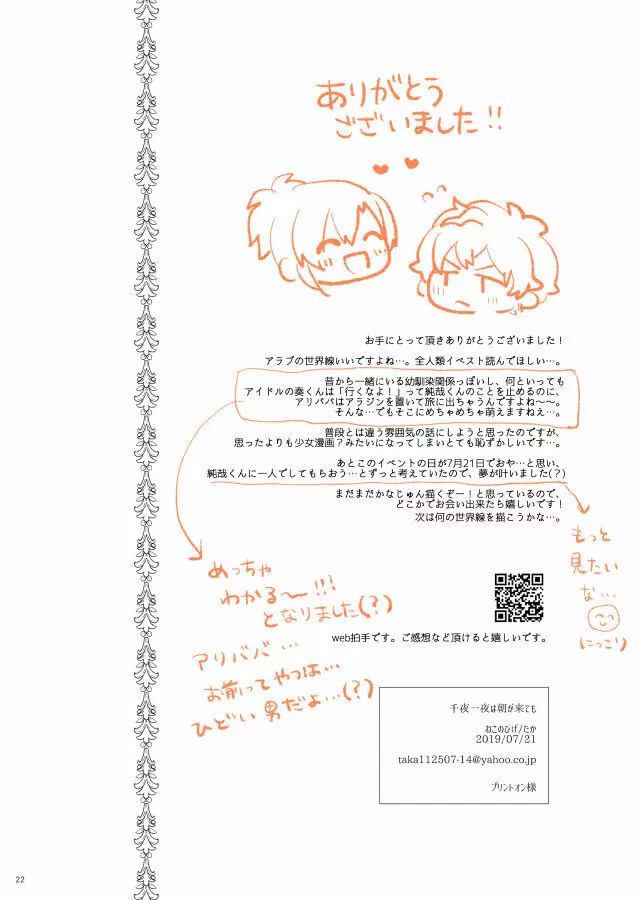 ありがとう
ございました!!
お手にとって頂きありがとうございました!
アラブの世界線いいですよね…。全人類イベスト読んでほしい…。
昔から一緒にいる幼馴染関係っぽいし、何といっても
アイドルの奏くんは「行くなよ！」って純哉くんのことを止めるのに、
アリババはアラジンを置いて旅に出ちゃうんですよね〜〜。
そんな…でもそこにめちゃめちゃ萌えますねえ…。
普段とは違う雰囲気の話にしようと思ったのですが、
思ったよりも少女漫画？みたいになってしまいとても恥ずかしいです…。
あとこのイベントの日が7月21日でおや…と思い、
純哉くんに一人でしてもらおう…とずっと考えていたので、夢が叶いました(？)
まだまだかなじゅん描くぞー！と思っているので、
どこかでお会い出来たら嬉しいです！
次は何の世界線を描こうかな…。
もっと
見たい
な…
(にっこり)
めっちゃ
わかる〜!!!
となりました(?)
アリババ…
お前ってやつは…
ひどい男だよ…(?)
web拍手です。ご感想など頂けると嬉しいです。
千夜一夜は朝が来ても
ねこのひげ/たか
2019/07/21
taka112507-14@yahoo.co.jp
プリントオン様
22